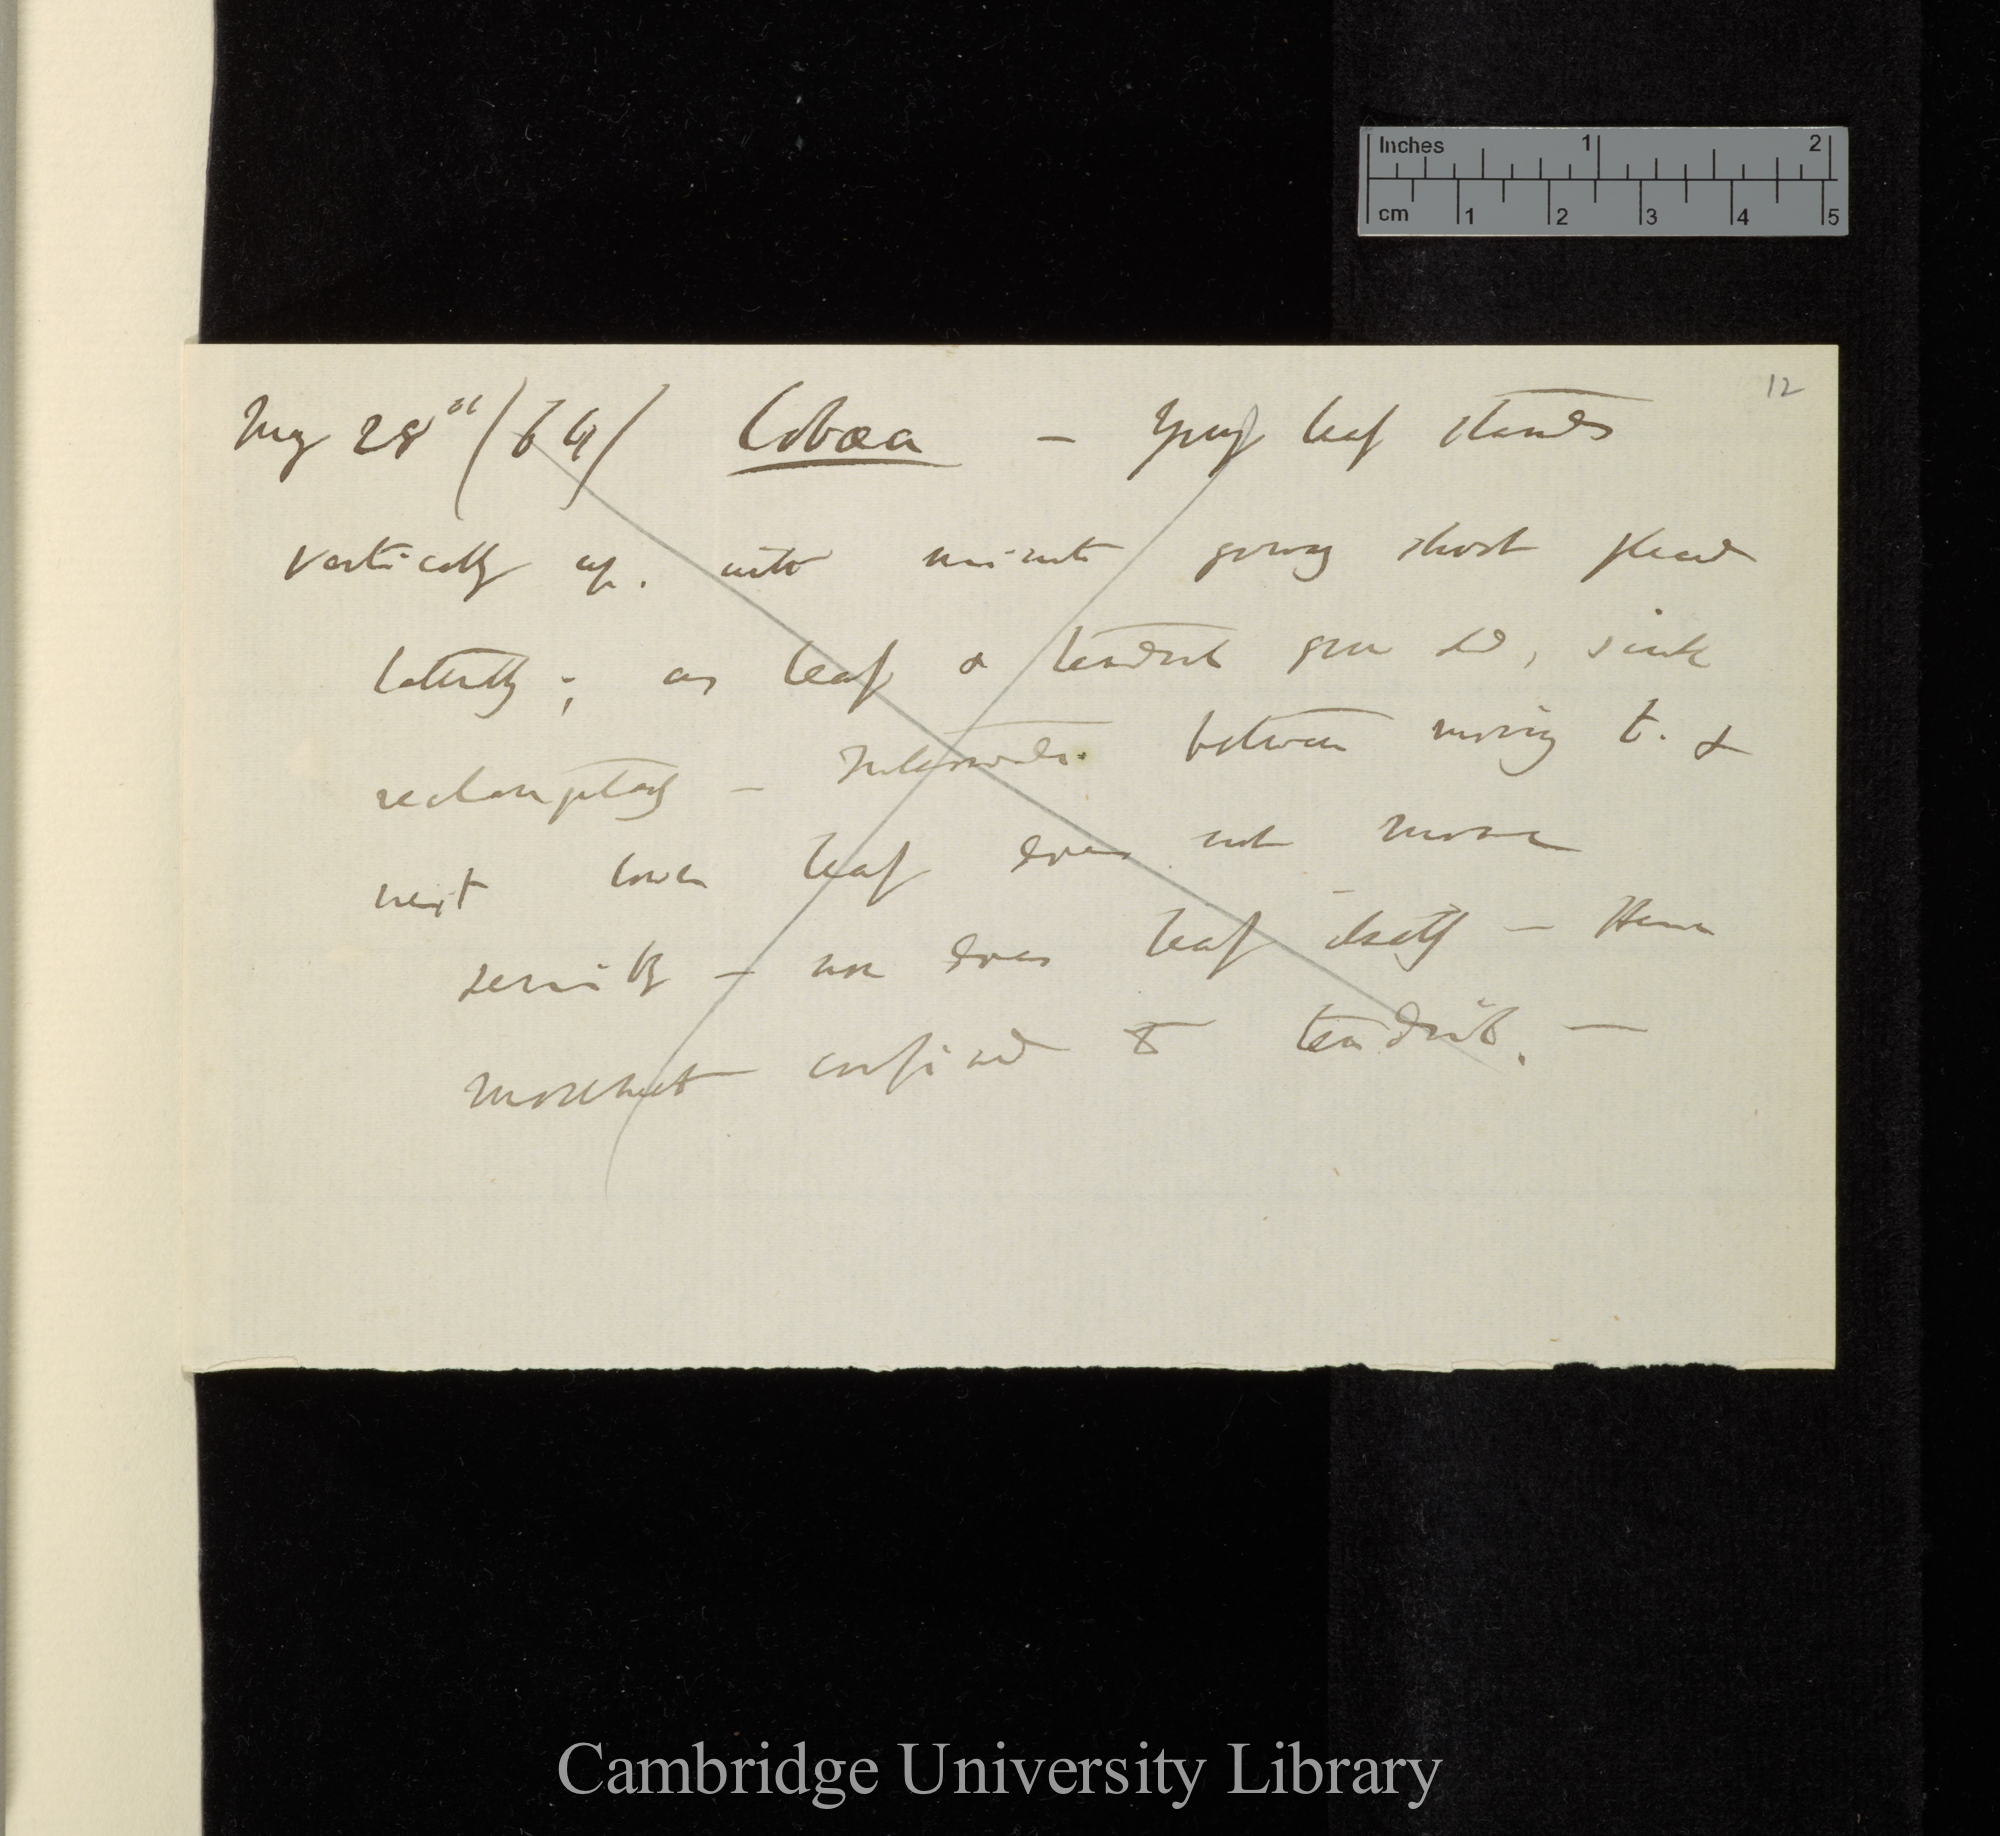 Inches 1 2
cm 1 2 3 4 5
12
May 28th / 64 / Cobæa — Young leaf stands
vertically up. with minute young shoot placed
laterally; as leaf & tendril grow old, sink
rectangularly — Internodes between moving t. &
next lower leaf does not move
sensibly — nor does leaf itself — Hence
movement confined to tendril. —
Cambridge University Library